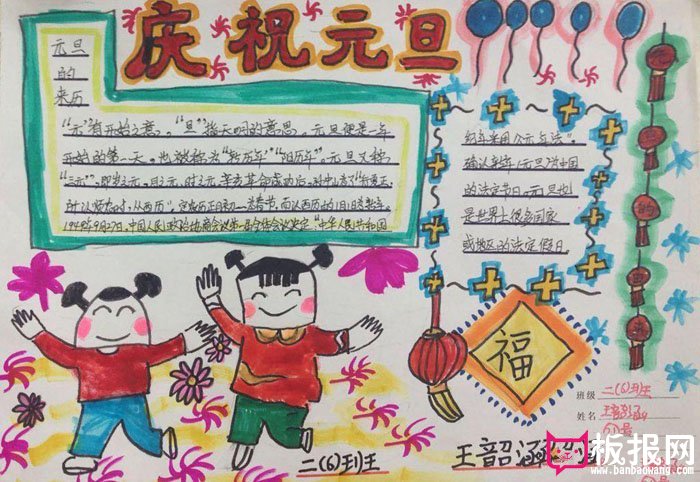 庆祝元旦
元旦
的
来历
"元"有开始之意,"旦"指天明的意思。元旦便是一年
开始的第一天。也被称为"新历年""阳历年"。元旦又称
"三元",即岁之元、月之元、时之元。辛亥革命成功后,孙中山为了
所以顺农时,从西历",定农历正月初一为春节,而以西历的1月1日为新年。
1949年9月27日,中国人民政治协商会议第一届全体会议决定"中华人民共和国
纪年采用公元年法",
确认新年(元旦)为中国
的法定节日。元旦也
是世界上很多国家
或地区的法定假日
的
福
班级 二(6)
姓名 王韶涵
二(6)王
王韶涵
板报网
www.banbaowang.com